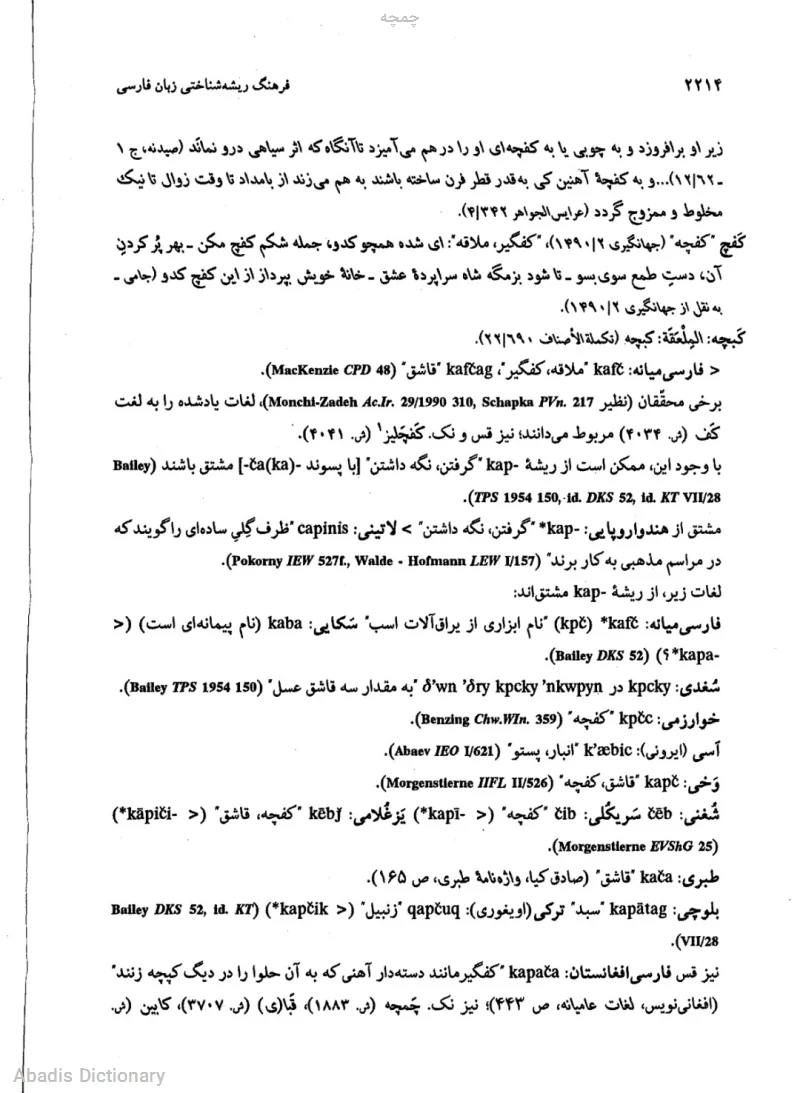 چمچه
۲۲۱۴
فرهنگ ریشه‌شناختی زبان فارسی
زیر او برافروزد و به چوبی یا به کفچه‌ای او را در هم می‌آمیزد تا آنگاه که اثر سیاهی درو نماند (صیدنه، ج ۱
ـ ۱۲/۶۲)...و به کفچهٔ آهنین کی به قدر قطر فرن ساخته باشند به هم می‌زند از بامداد تا وقت زوال تا نیک
مخلوط و ممزوج گردد (عرایس‌الجواهر ۴/۳۴۲).
کَفچ "کفچه" (جهانگیری ۱۴۹۰/۲)، "کفگیر، ملاقه": ای شده همچو کدو، جمله شکم کفچ مکن ـ بهر پُر کردنِ
آن، دستِ طمع سوی‌بسو ـ تا شود بزمگه شاه سراپردهٔ عشق ـ خانهٔ خویش بپرداز از این کفچ کدو (جامی ـ
به نقل از جهانگیری ۱۴۹۰/۲).
کَبچه: المِلْعَقَة: کبچه (تکملة‌الأصناف ۲۲/۶۹۰).
< فارسی‌میانه: kafč "ملاقه، کفگیر"، kafčag "قاشق" (MacKenzie CPD 48).
برخی محقّقان (نظیر Monchi-Zadeh Ac.Ir. 29/1990 310, Schapka PVn. 217)، لغات یادشده را به لغت
کَف (ش. ۴۰۳۴) مربوط می‌دانند؛ نیز قس و نک. کَفچَلیز۱ (ش. ۴۰۴۱).
با وجود این، ممکن است از ریشهٔ kap- "گرفتن، نگه داشتن" [با پسوند -ča(ka)-] مشتق باشند (Bailey
TPS 1954 150, id. DKS 52, id. KT VII/28).
مشتق از هندواروپایی: *kap- "گرفتن، نگه داشتن" > لاتینی: capinis "ظرف گِلیِ ساده‌ای را گویند که
در مراسم مذهبی به کار برند" (Pokorny IEW 527f., Walde - Hofmann LEW I/157).
لغات زیر، از ریشهٔ kap- مشتق‌اند:
فارسی‌میانه: *kafč (kpč) "نام ابزاری از یراق‌آلات اسب" سَکایی: kaba (نام پیمانه‌ای است) (<
*kapa- ؟) (Bailey DKS 52).
سُغدی: kpcky در δ'wn 'δry kpcky 'nkwpyn "به مقدار سه قاشق عسل" (Bailey TPS 1954 150).
خوارزمی: kpčc "کفچه" (Benzing Chw.WIn. 359).
آسی (ایرونی): k'æbic "انبار، پستو" (Abaev IEO I/621).
وَخی: kapč "قاشق، کفچه" (Morgenstierne IIFL II/526).
شُغنی: čēb سَریکُلی: čib "کفچه" (< *kapī-) یَزغُلامی: kēbǰ "کفچه، قاشق" (< *kāpiči-)
(Morgenstierne EVShG 25).
طبری: kača "قاشق" (صادق کیا، واژه‌نامهٔ طبری، ص ۱۶۵).
بلوچی: kapātag "سبد" ترکی(اویغوری): qapčuq "زنبیل" (< *kapčik) (Bailey DKS 52, id. KT
VII/28).
نیز قس فارسی‌افغانستان: kapača "کفگیرمانند دسته‌دار آهنی که به آن حلوا را در دیگ کپچه زنند"
(افغانی‌نویس، لغات عامیانه، ص ۴۴۳)؛ نیز نک. چَمچه (ش. ۱۸۸۳)، قَبا(ی) (ش. ۳۷۰۷)، کابین (ش.
Abadis Dictionary